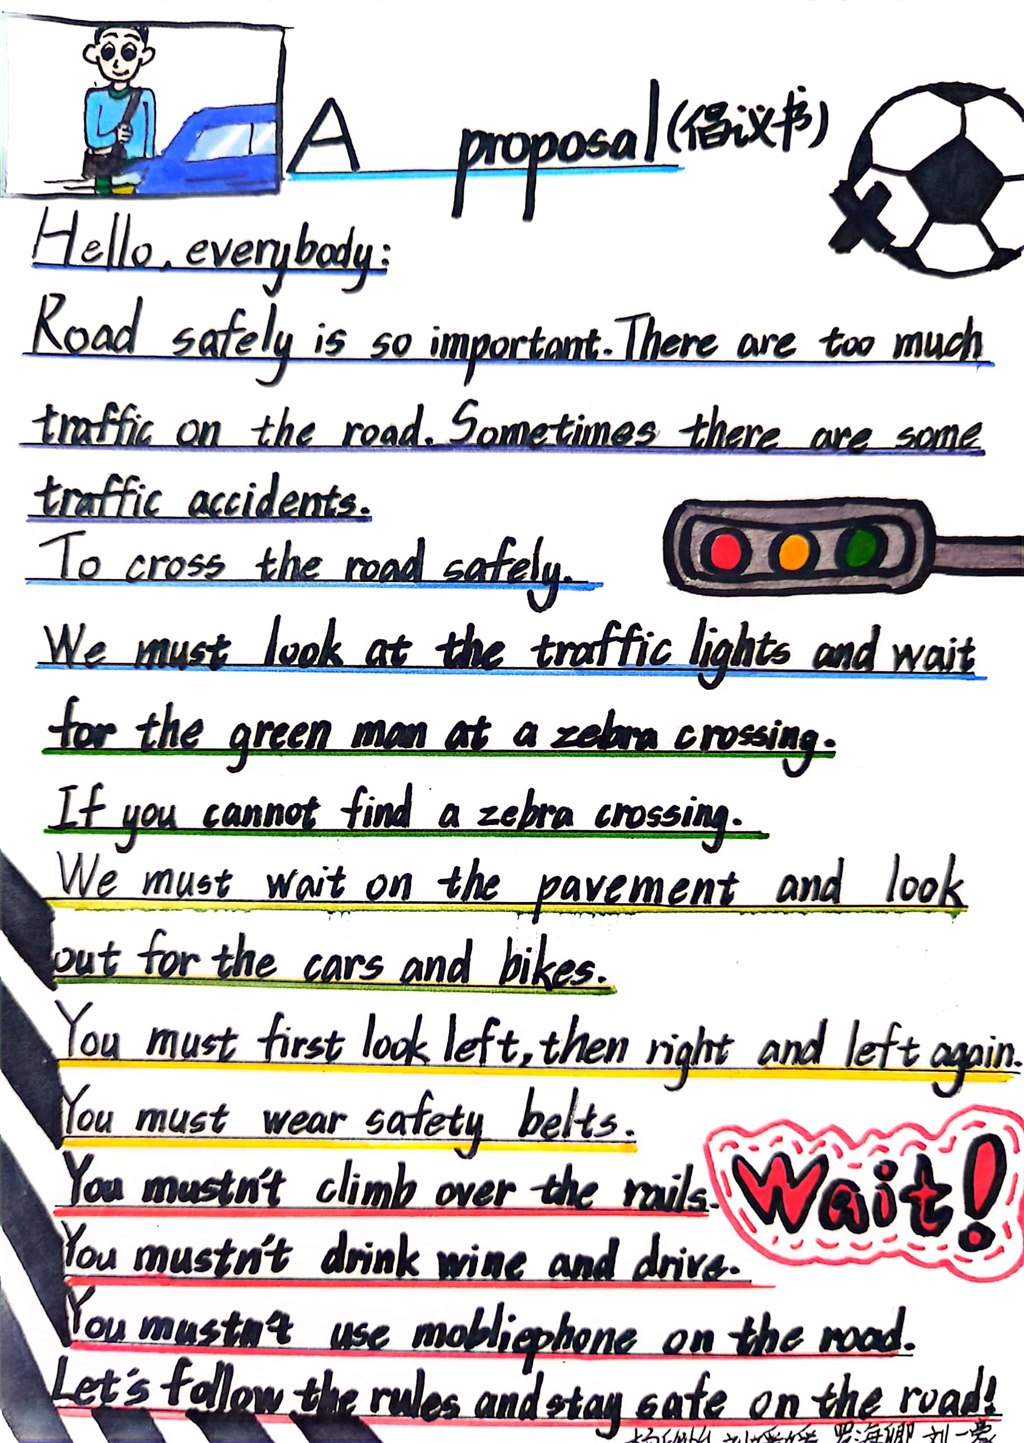 A proposal (倡议书)
Hello, everybody:
Road safely is so important. There are too much
traffic on the road. Sometimes there are some
traffic accidents.
To cross the road safely.
We must look at the traffic lights and wait
for the green man at a zebra crossing.
If you cannot find a zebra crossing.
We must wait on the pavement and look
out for the cars and bikes.
You must first look left, then right and left again.
You must wear safety belts.
You mustn't climb over the rails.
Wait!
You mustn't drink wine and drive.
You mustn't use mobliephone on the road.
Let's follow the rules and stay safe on the road!